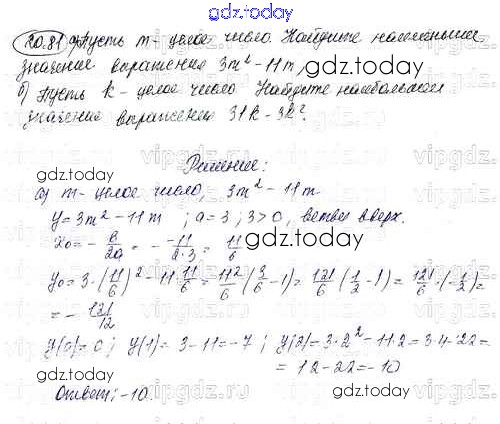 gdz.today
20.81 а) Пусть m - целое число. Найдите наименьшее
значение выражения 3m² - 11m,
б) Пусть k - целое число Найдите наибольшее
значение выражения 31k - 3k².
gdz.today
Решение:
а) m - целое число, 3m² - 11m
y = 3m² - 11m ; a = 3; 3 > 0, ветви вверх.
x₀ = - b/2a = - -11/2·3 = 11/6
gdz.today
y₀ = 3·(11/6)² - 11·11/6 = 11²/6 (3/6 - 1) = 121/6 (1/2 - 1) = 121/6 · (-1/2) =
= - 121/12
y(0) = 0; y(1) = 3 - 11 = -7 ; y(2) = 3·2² - 11·2 = 3·4 - 22 =
= 12 - 22 = -10
gdz.today
Ответ: -10.
gdz.today